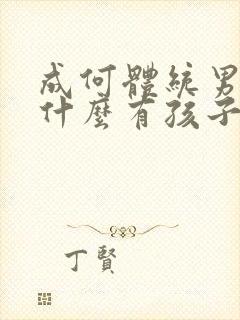 成何體統男
什麼有孩子
丁賢